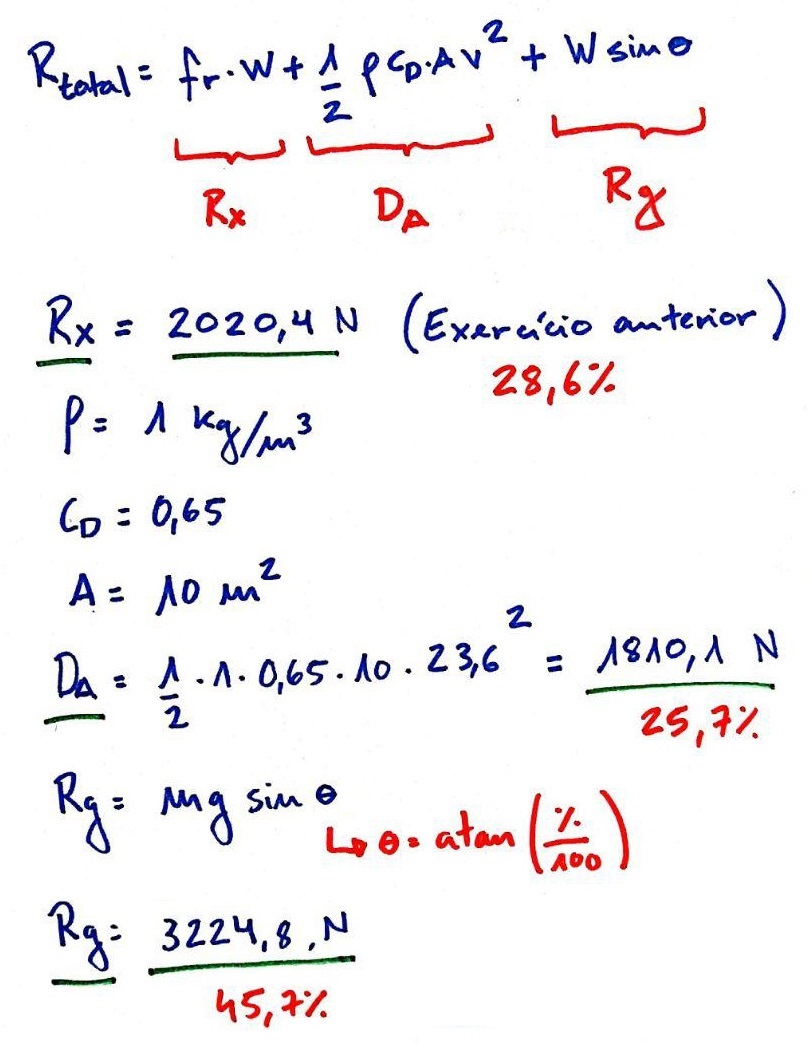 Rtotal = fr·W + 1/2 ρ CD·A v² + W sin θ
Rx DA Rg
Rx = 2020,4 N (Exercício anterior)
28,6%
ρ = 1 kg/m³
CD = 0,65
A = 10 m²
DA = 1/2 · 1 · 0,65 · 10 · 23,6² = 1810,1 N
25,7%
Rg = mg sin θ
↳ θ = atan (%/100)
Rg = 3224,8 . N
45,7%